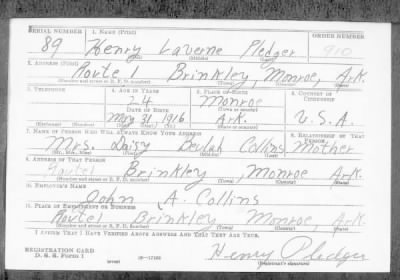 SERIAL NUMBER 1. NAME (Print) ORDER NUMBER
89 Henry Laverne Pledger 910
(First) (Middle) (Last)
2. ADDRESS (Print)
Route 1 Brinkley, Monroe, Ark
(Number and street or R. F. D. number) (Town) (County) (State)
3. TELEPHONE 4. AGE IN YEARS 5. PLACE OF BIRTH 6. COUNTRY OF CITIZENSHIP
24 Monroe
DATE OF BIRTH (Town or county)
May 31, 1916 Ark. U.S.A.
(Exchange) (Number) (Mo.) (Day) (Yr.) (State or country)
7. NAME OF PERSON WHO WILL ALWAYS KNOW YOUR ADDRESS 8. RELATIONSHIP OF THAT PERSON
Mrs. Daisy Beulah Collins Mother
(Mr., Mrs., Miss) (First) (Middle) (Last)
9. ADDRESS OF THAT PERSON
Route 1 Brinkley, Monroe, Ark
(Number and street or R. F. D. number) (Town) (County) (State)
10. EMPLOYER'S NAME
John A. Collins
11. PLACE OF EMPLOYMENT OR BUSINESS
Route 1 Brinkley Monroe, Ark
(Number and street or R. F. D. number) (Town) (County) (State)
I AFFIRM THAT I HAVE VERIFIED ABOVE ANSWERS AND THAT THEY ARE TRUE.
REGISTRATION CARD
D. S. S. Form 1 (over) 16—17105
Henry Pledger
(Registrant's signature)